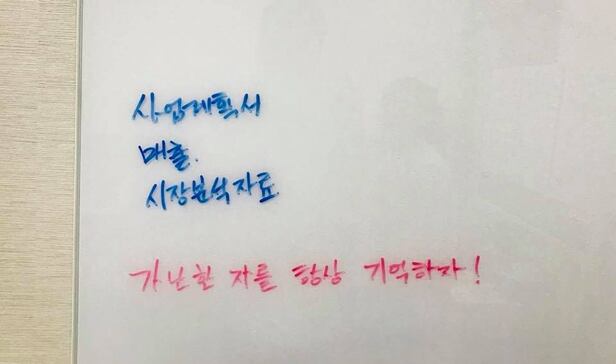 사업계획서
매출.
시장분석자료.
가난한 자를 항상 기억하자!